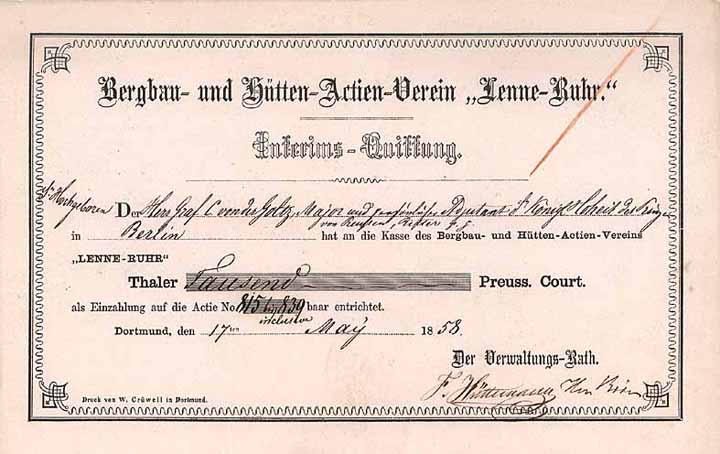 Bergbau- und Hütten-Actien-Verein „Lenne-Ruhr.“
Interims-Quittung.
Sr Hochgeboren Der Herr Graf C von der Goltz, Major und persönlicher Adjutant Sr Königl Hoheit des Prinzen
von Preußen, Ritter p. p.
in Berlin hat an die Kasse des Bergbau- und Hütten-Actien-Vereins
„LENNE-RUHR“
Thaler Tausend Preuss. Court.
als Einzahlung auf die Actie No. 815 bis 839 baar entrichtet.
inclusive
Dortmund, den 17ten May 1858.
Der Verwaltungs-Rath.
F. Hüttemann
Druck von W. Crüwell in Dortmund.